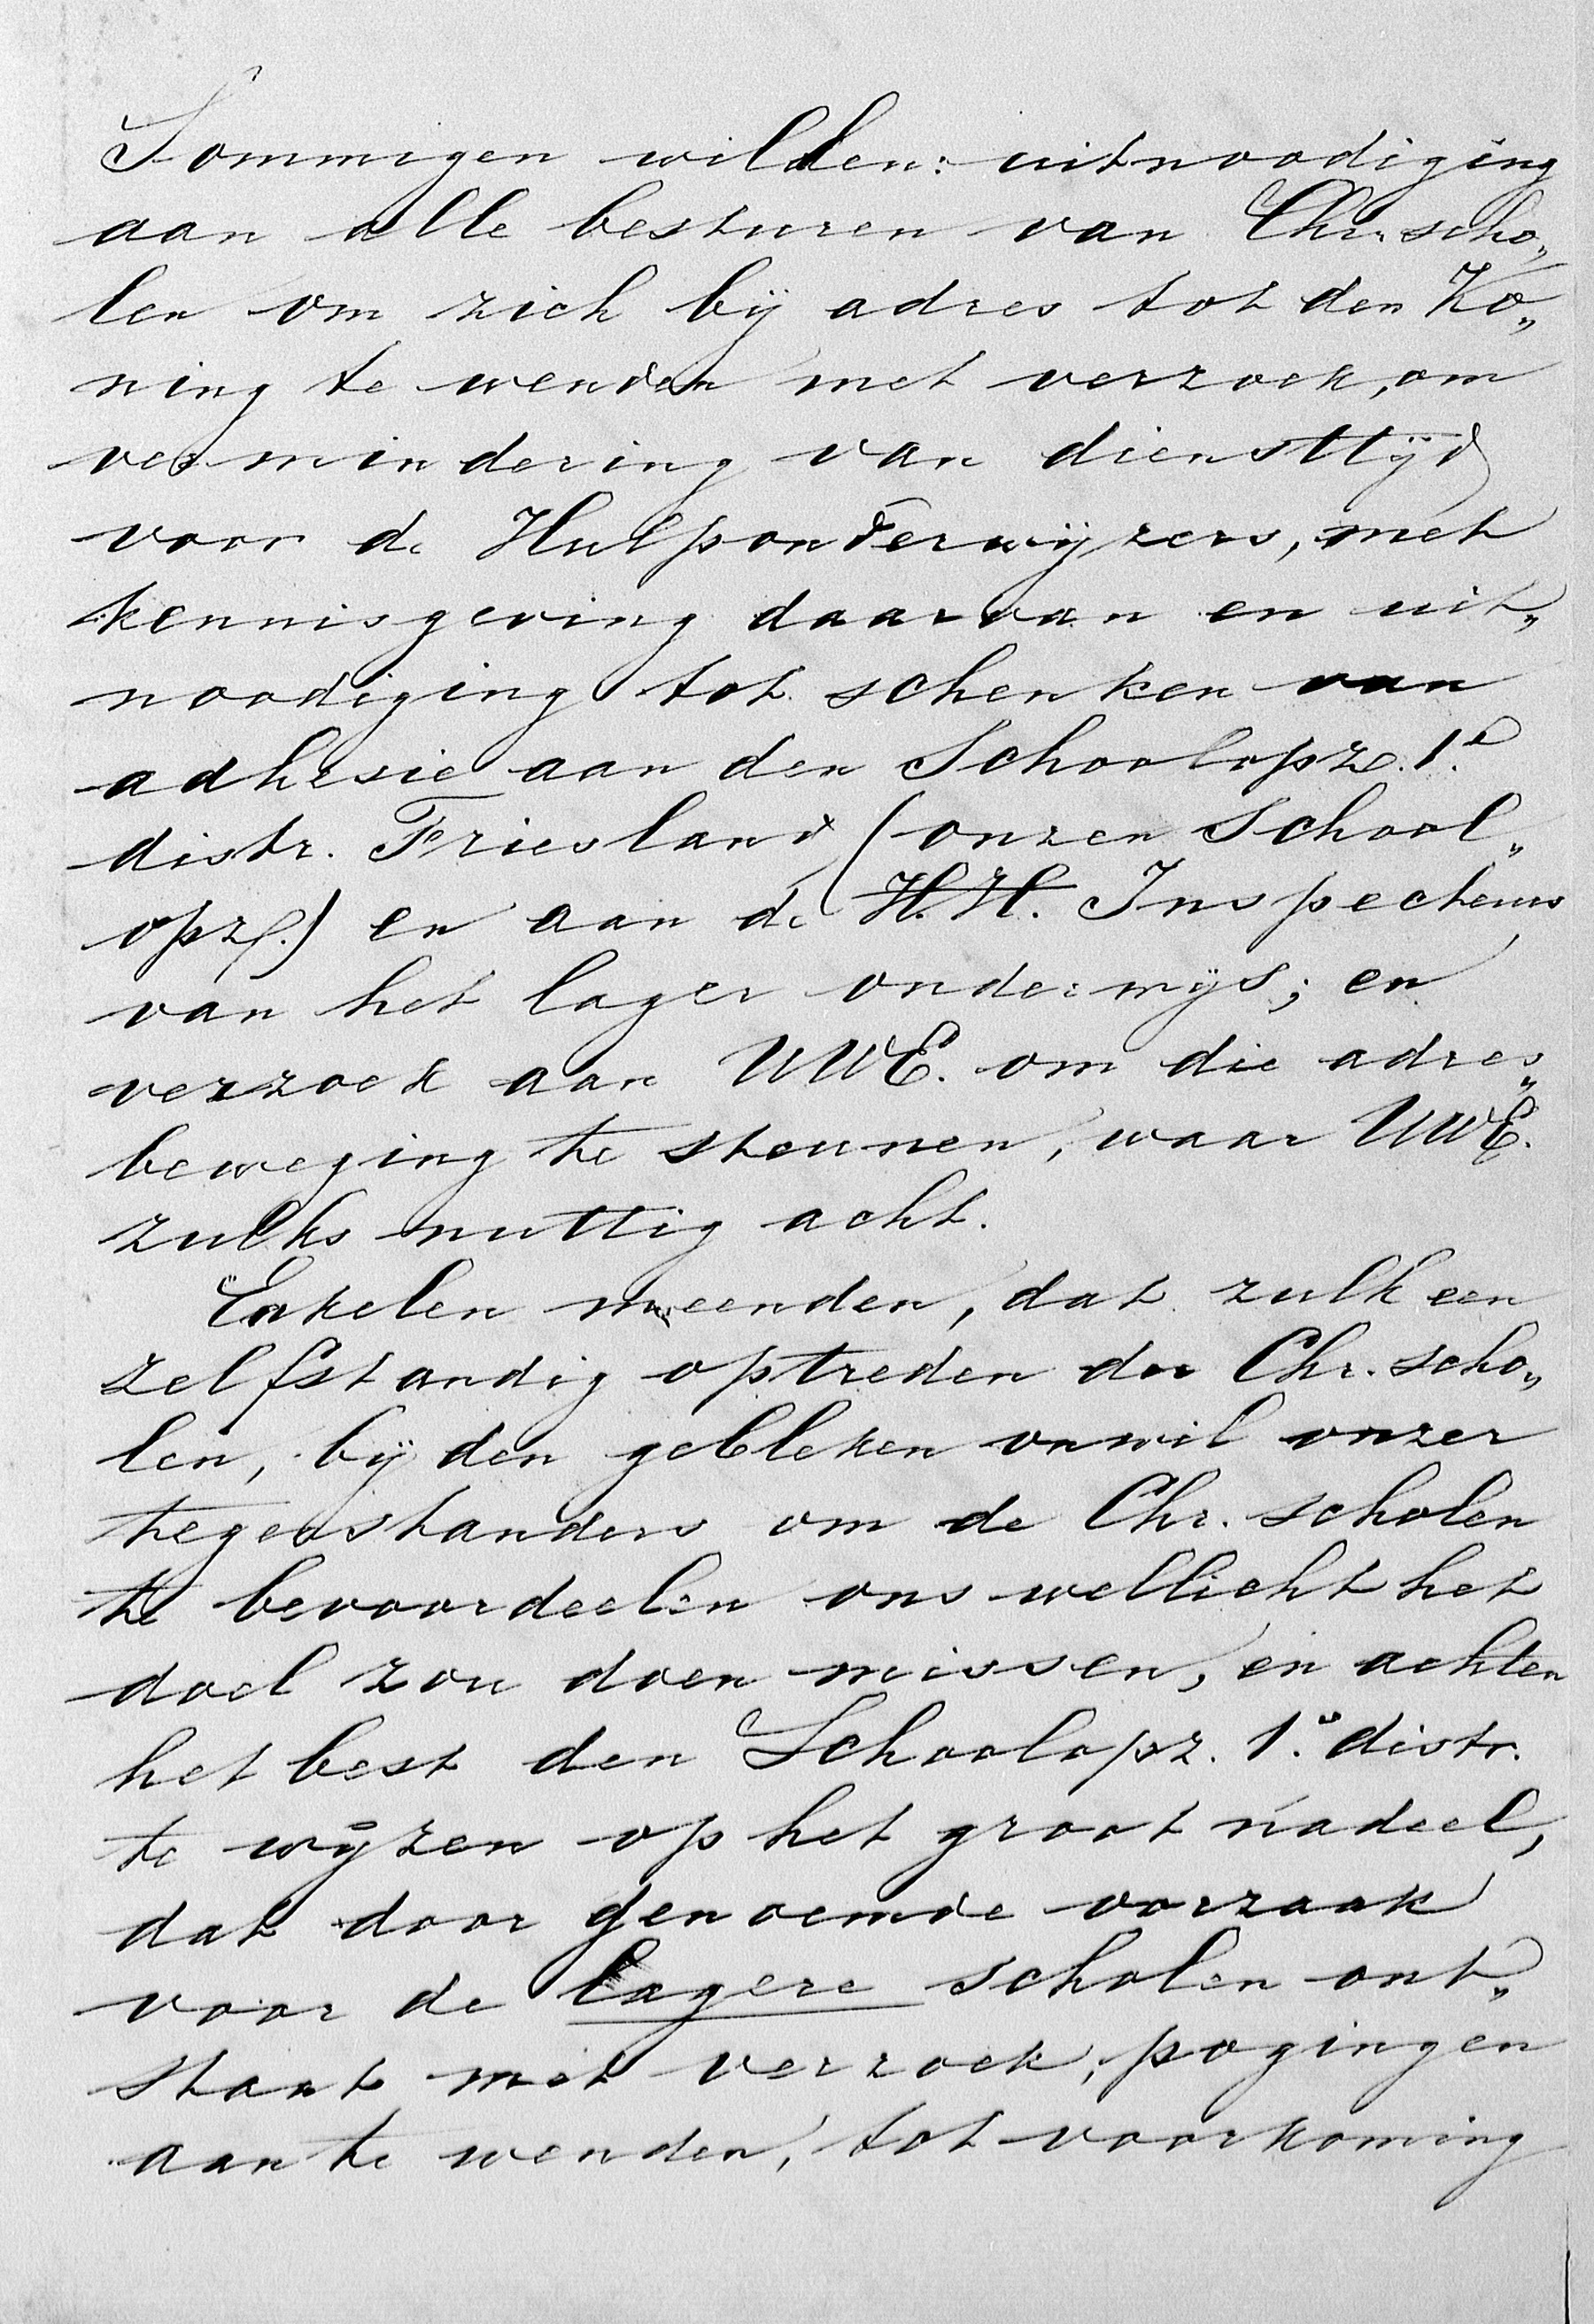 Sommigen wilden: uitnoodiging
aan alle besturen van Chr. scho„
len om zich bij adres tot den Ko„
ning te wenden met verzoek, om
vermindering van diensttijd
voor de Hulponderwijzers, met
kennisgeving daarvan en uit„
noodiging tot schenken van
adhesie aan den Schoolopz. 1e
distr. Friesland (onzen School„
opz.) en aan de H.H. Inspecteurs
van het lager onderwijs; en
verzoek aan UWE. om die adres„
beweging te steunen, waar UWE.
zulks nuttig acht.
Enkelen meenden, dat zulk een
zelfstandig optreden der Chr. scho„
len, bij den gebleken onwil onzer
tegenstanders om de Chr. scholen
te bevoordeelen ons wellicht het
doel zou doen missen, en achten
het best den Schoolopz. 1e distr.
te wijzen op het groot nadeel,
dat door genoemde oorzaak
voor de lagere scholen ont„
staat met verzoek, pogingen
aan te wenden, tot voorkoming